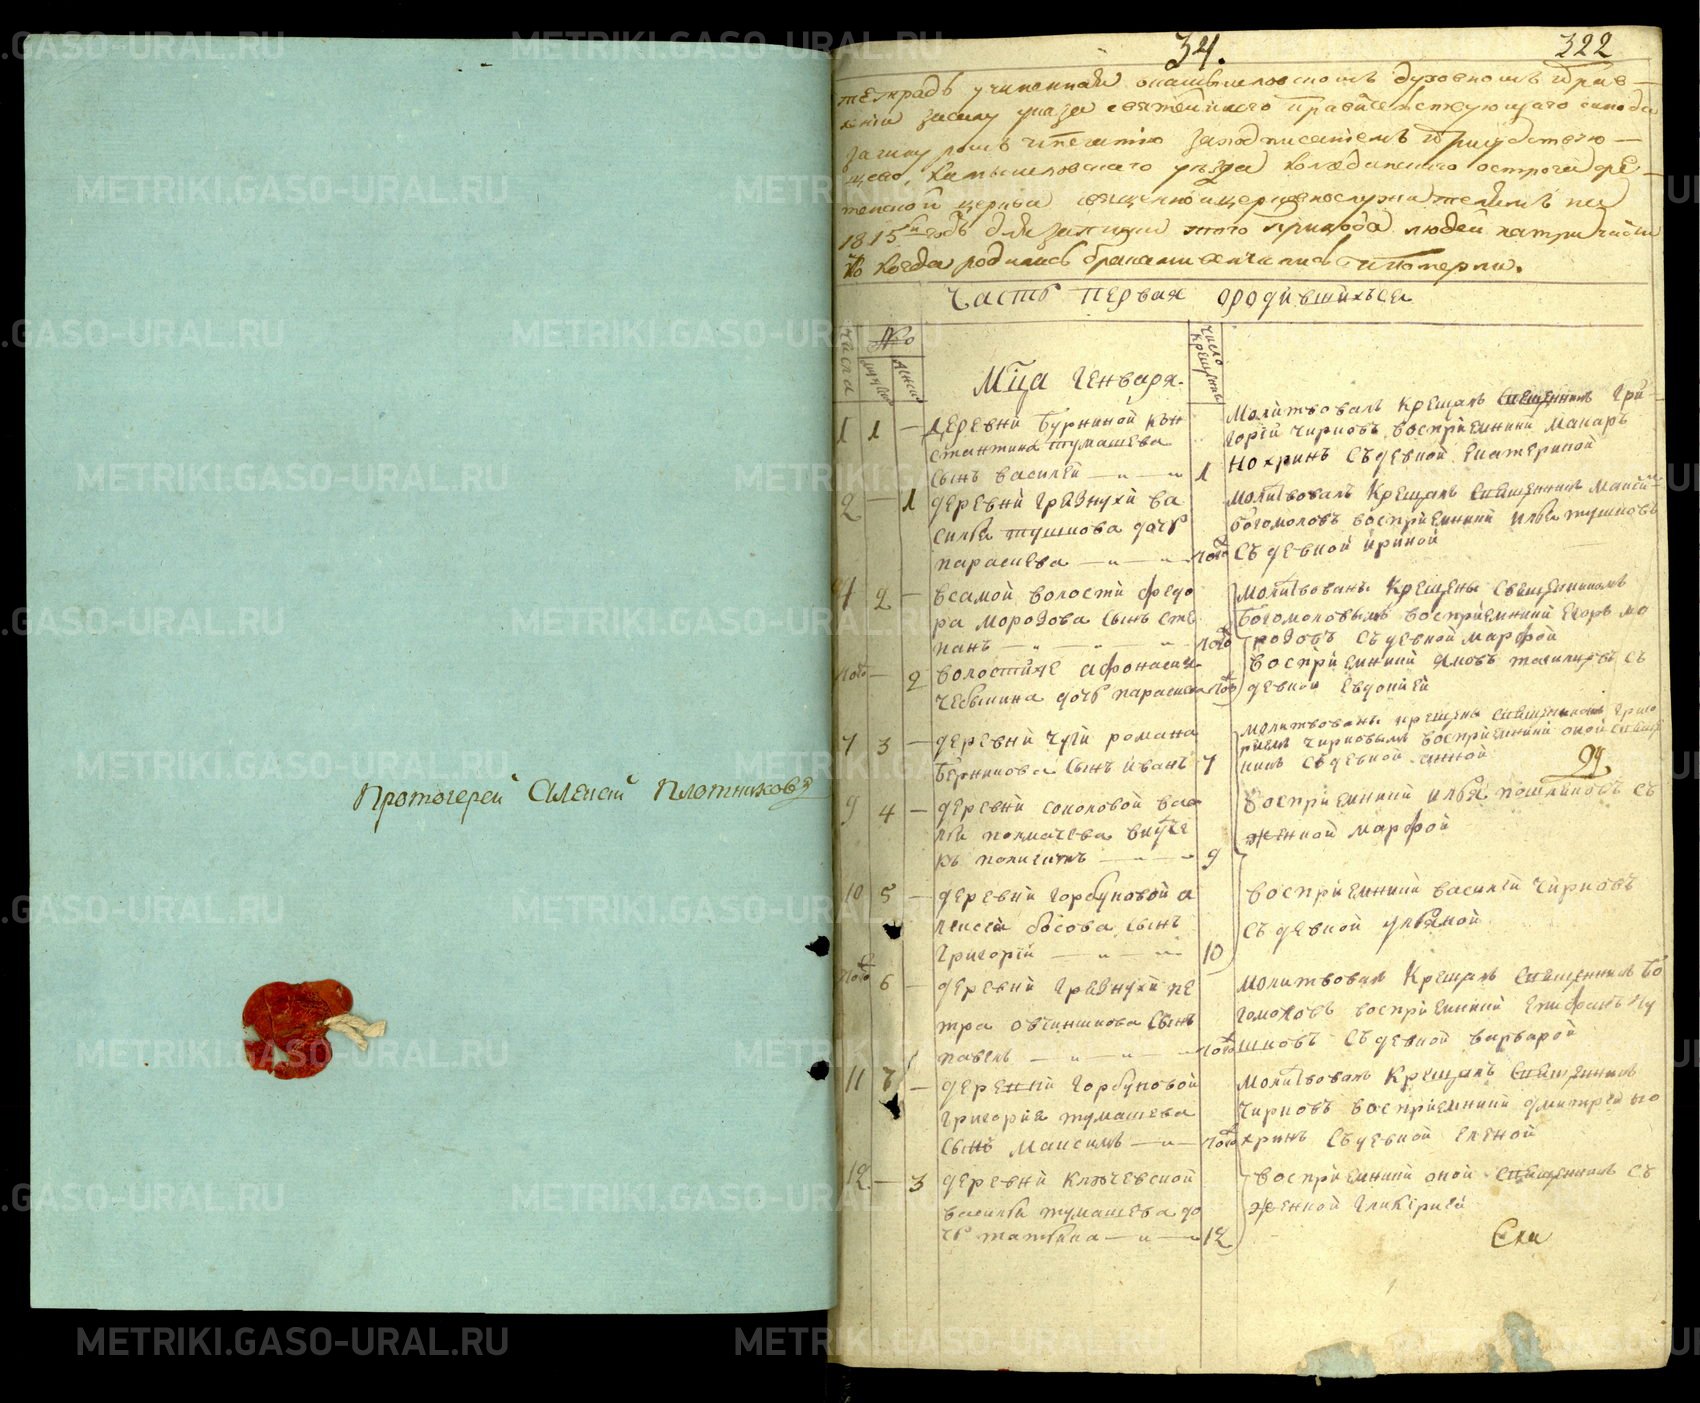 Протоиерей Алексей Плотников
34.
322
тетрадь учиненная Камышловскомъ духовномъ прав-
лении засилу указа святейшаго правительствующаго синода
заскрепою и печатию
щево, Камышловскаго уезда Колчеданского острога сре-
тенской церкви священноицерковнослужителямъ на
1815й годъ для записки этого прихода людей натри части
кто когда родились браками венчались и померли.
Часть первая ородившихъся
Числа
№о
мужеск
женск
Мца Генваря.
число крещения
1 1 — деревни Бурниной Кон
стантина тумашева
сынъ василей — „ — „ 1
Молитвовалъ Крещалъ священникъ Гри-
горей Чирковъ восприемники Макаръ
Нохринъ Съ девкой Екатериной
2 — 1 деревни Грязнухи ва
силья тушнова дочь
парасковья — „ — „ того
молитвовалъ Крещалъ священникъ
Богомоловъ восприемники илья тушновъ
Съ девкой ириной
4 2 — всамой волости федо
ра морозова Сынъ сте
панъ — „ — „ — „ того
молитвованы Крещены Священникомъ
Богомоловымъ восприемники Егоръ мо
розовъ Съ девкой марфой
того — 2 волостиже афонасия
Чебыкина дочь парасковья того
восприемники Яковъ Съ
девкой Евдокией
7 3 — деревни Чуги романа
Берникова Сынъ иванъ 7
молитвованы крещены священникомъ григо
риемъ Чирковымъ восприемники оной священ
никъ Съ девкой анной
9 4 — деревни соколовой васи
лья толмачева внуче
къ — „ — „ 9
восприемники илья Съ
женкой марфой
10 5 — деревни Горбуновой а
лексея босова Сынъ
Григорий — „ — „ 10
восприемники василей Чирковъ
Съ девкой ульяной
того 6 — деревни Грязнухи пе
тра овчинникова Сынъ
павелъ — „ — „ — того
молитвовалъ Крещалъ священникъ Бо
гомоловъ восприемники Епифанъ ту
шновъ Съ девкой варварой
11 7 — деревни Горбуновой
Григория тумашева
Сынъ Максимъ — „ — того
молитвовалъ Крещалъ Священникъ
Чирковъ восприемники дмитрей но
хринъ Съ девкой Еленой
12 — 3 деревни Ключевской
василья тумашева до
чь татьяна — „ — „ 12
восприемники оной священникъ съ
женкой Гликерией